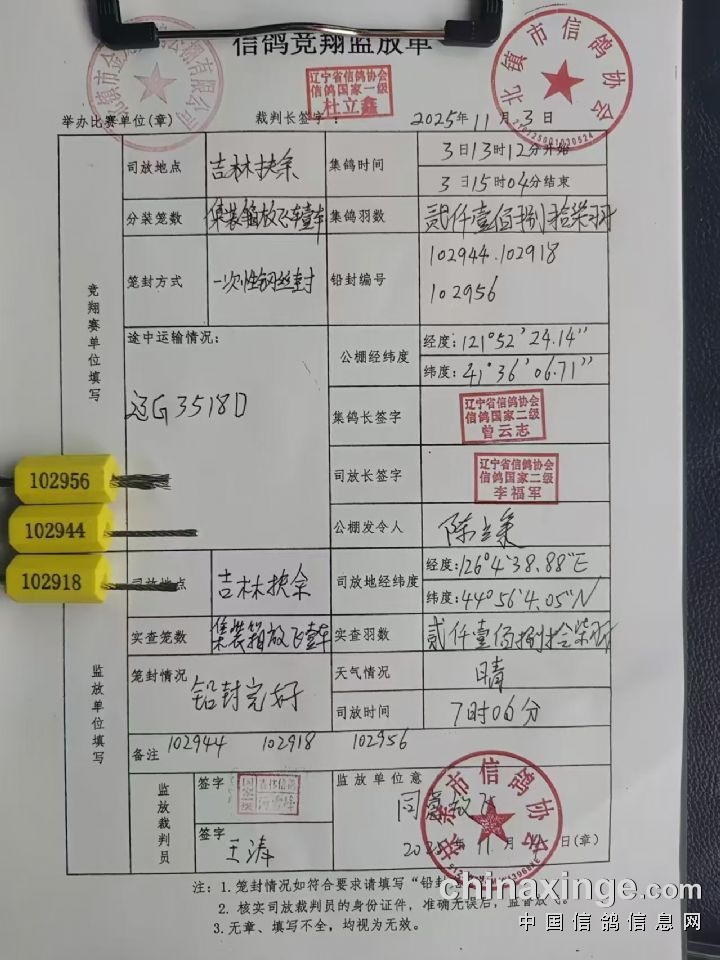 信鸽竞翔监放单
北镇市信鸽协会
辽宁省信鸽协会
信鸽国家一级
杜立鑫
举办比赛单位(章) 裁判长签字: 2025年11月3日
竞翔赛单位填写
司放地点 吉林扶余 集鸽时间 3日13时12分开始
3日15时04分结束
分装笼数 集装箱放飞车壹车 集鸽羽数 贰仟壹佰捌拾柒羽
笼封方式 一次性钢丝封 铅封编号 102944.102918
102956
途中运输情况: 公棚经纬度 经度:121°52′24.14″
纬度:41°36′06.71″
辽G3518D
集鸽长签字 辽宁省信鸽协会
信鸽国家二级
曾云志
司放长签字 辽宁省信鸽协会
信鸽国家二级
李福军
公棚发令人
102956
102944
102918
监放单位填写
司放地点 吉林扶余 司放地经纬度 经度:126°4′38.88″E
纬度:44°56′4.05″N
实查笼数 集装箱放飞壹车 实查羽数 贰仟壹佰捌拾柒羽
笼封情况 铅封完好 天气情况 晴
司放时间 7时06分
备注 102944 102918 102956
监放裁判员 签字 监放单位意
同意放飞
签字 王涛
月 日(章)
市信鸽协会
注: 1.笼封情况如符合要求请填写“铅封
2.核实司放裁判员的身份证件,准确无误后,监督放飞。
3.无章、填写不全,均视为无效。
chinaxinge.com
中国信鸽信息网